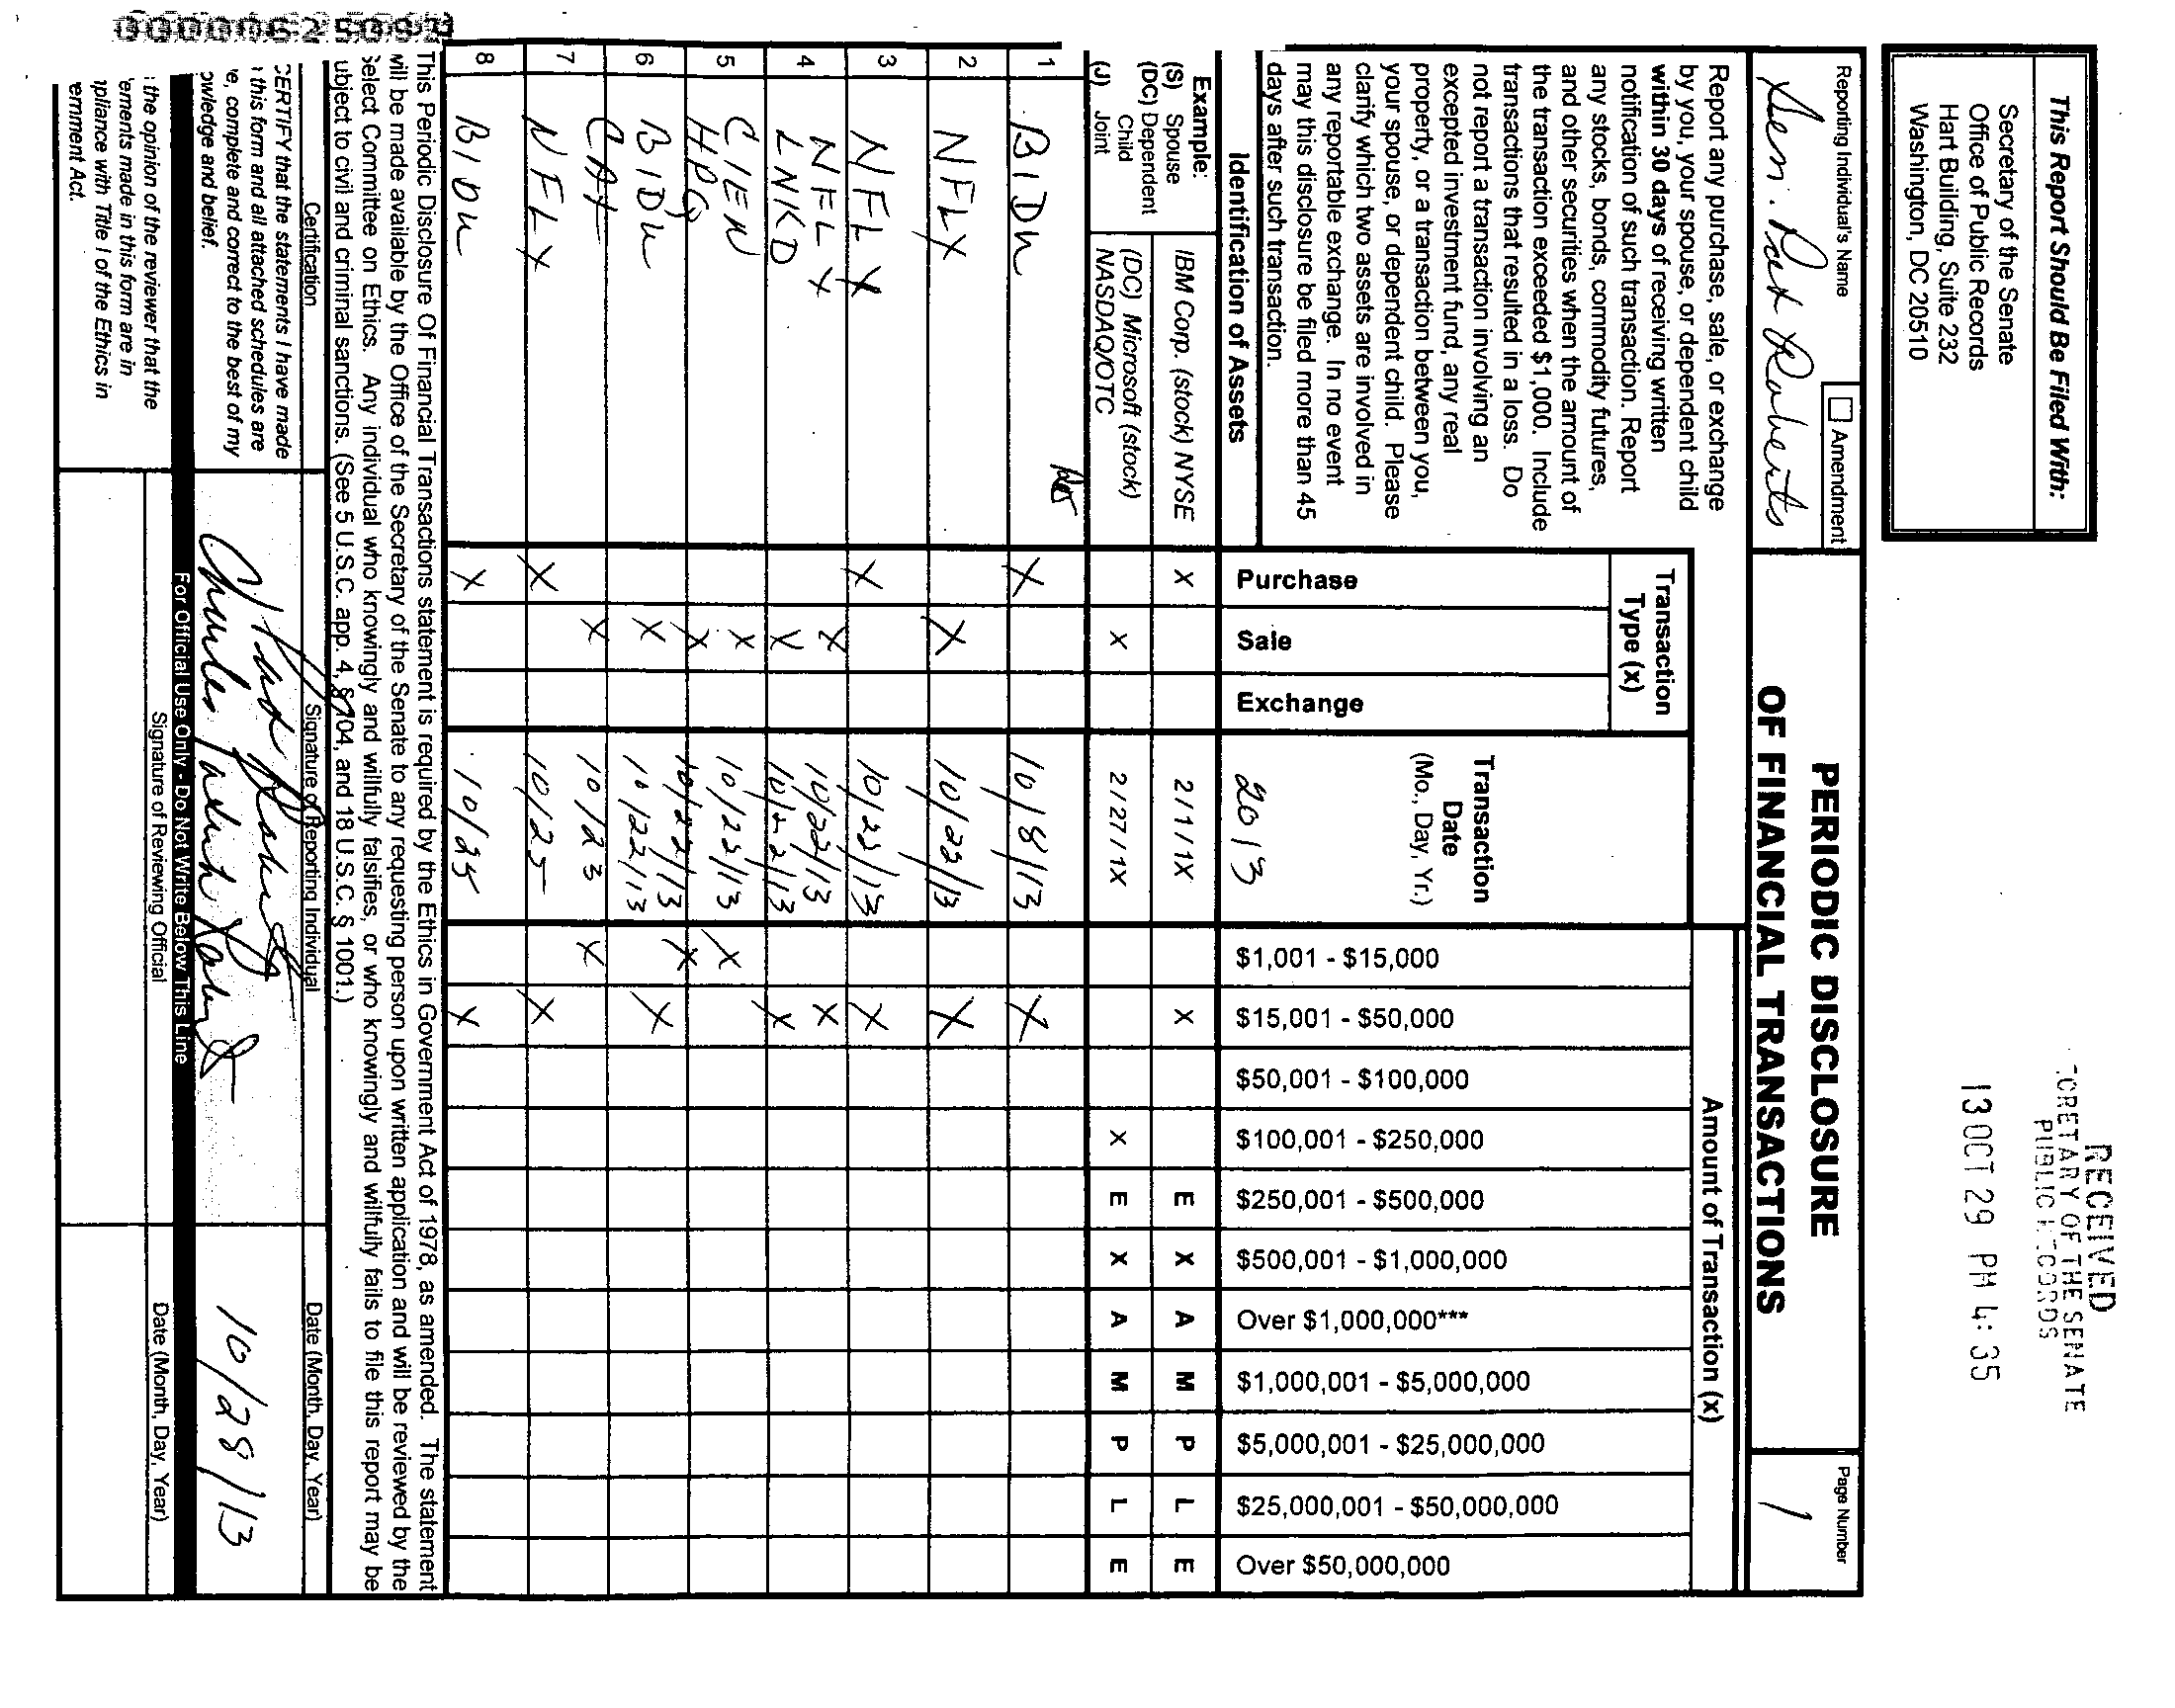 This Report Should Be Filed With:
Secretary of the Senate
Office of Public Records
Hart Building, Suite 232
Washington, DC 20510
RECEIVED
PUBLIC
OF THE SENATE
13 OCT 29 PM 4:35
Reporting Individual's Name
Sen. Pat Roberts
☐ Amendment
PERIODIC DISCLOSURE
OF FINANCIAL TRANSACTIONS
Page Number
1
Report any purchase, sale, or exchange
by you, your spouse, or dependent child
within 30 days of receiving written
notification of such transaction. Report
any stocks, bonds, commodity futures,
and other securities when the amount of
the transaction exceeded $1,000. Include
transactions that resulted in a loss. Do
not report a transaction involving an
excepted investment fund, any real
property, or a transaction between you,
your spouse, or dependent child. Please
clarify which two assets are involved in
any reportable exchange. In no event
may this disclosure be filed more than 45
days after such transaction.
Identification of Assets
Transaction
Type (x)
Purchase
Sale
Exchange
Transaction
Date
(Mo., Day, Yr.)
2013
Amount of Transaction (x)
$1,001 - $15,000
$15,001 - $50,000
$50,001 - $100,000
$100,001 - $250,000
$250,001 - $500,000
$500,001 - $1,000,000
Over $1,000,000***
$1,000,001 - $5,000,000
$5,000,001 - $25,000,000
$25,000,001 - $50,000,000
Over $50,000,000
Example:
(S) Spouse
(DC) Dependent
Child
(J) Joint
IBM Corp. (stock) NYSE X 2/1/1X X E X A M P L E
(DC) Microsoft (stock)
NASDAQ/OTC X 2/27/1X X E X A M P L E
1 BIDU X 10/18/13 X
2 NFLX X 10/22/13 X
3 NFLX X 10/22/13 X
4 NFLX X 10/22/13 X
LNKD X 10/22/13 X
5 CIEN X 10/22/13 X
HPQ X 10/22/13 X
6 BIDU X 10/22/13 X
X 10/23 X
7 NFLX X 10/25 X
8 BIDU X 10/25 X
This Periodic Disclosure Of Financial Transactions statement is required by the Ethics in Government Act of 1978, as amended. The statement
will be made available by the Office of the Secretary of the Senate to any requesting person upon written application and will be reviewed by the
Select Committee on Ethics. Any individual who knowingly and willfully falsifies, or who knowingly and willfully fails to file this report may be
ubject to civil and criminal sanctions. (See 5 U.S.C. app. 4, § 104, and 18 U.S.C. § 1001.)
Certification
Signature of Reporting Individual
Date (Month, Day, Year)
CERTIFY that the statements I have made
this form and all attached schedules are
e, complete and correct to the best of my
owledge and belief.
10/28/13
For Official Use Only - Do Not Write Below This Line
the opinion of the reviewer that the
ements made in this form are in
pliance with Title I of the Ethics in
ernment Act.
Signature of Reviewing Official
Date (Month, Day, Year)